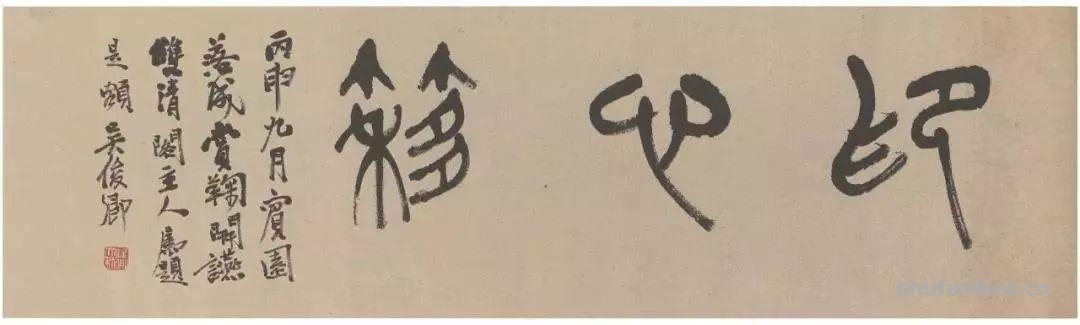 印心簃
丙申九月賓園
落成賞鞠開讌
雙清閣主人屬題
是額 吳俊卿